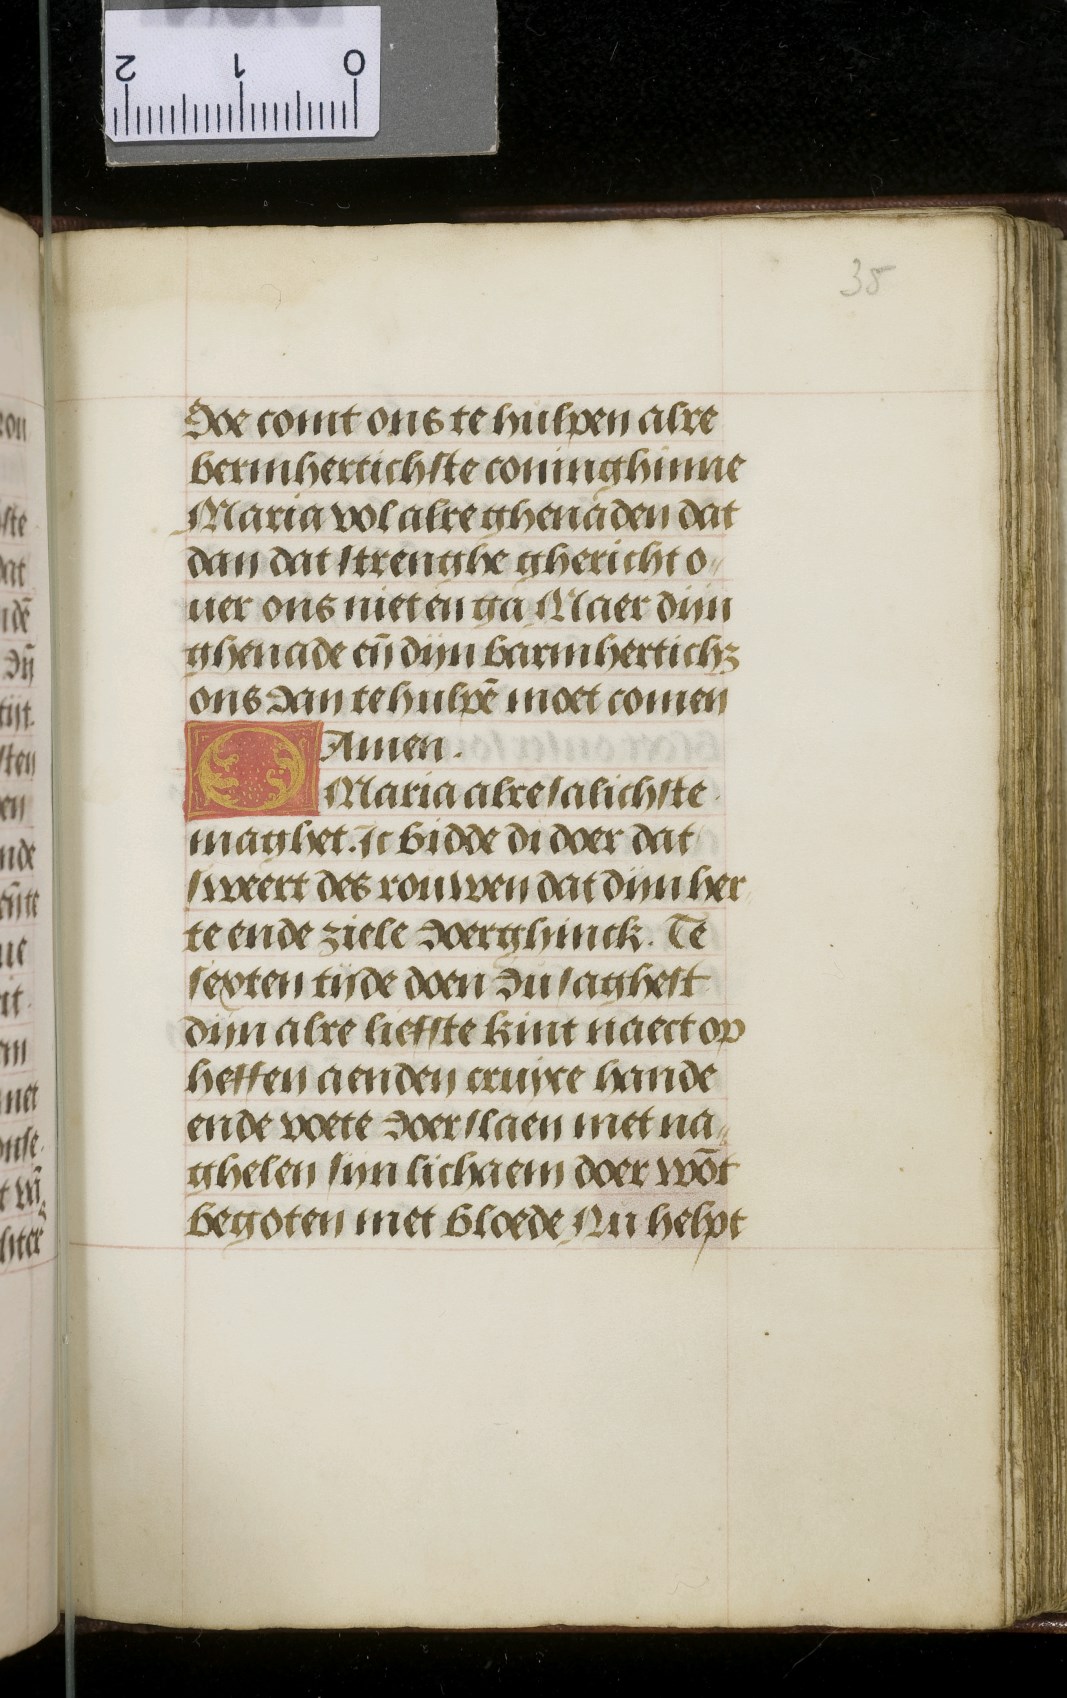 2 1 0
38
Doe comt ons te hulpen alre
bermhertichste coninghinne
Maria vol alre ghenaden dat
dan dat strenghe ghericht o„
uer ons niet en ga Maer dijn
ghenade eñ dijn barmhertichz
ons dan te hulpē moet comen
Amen.
O Maria alre salichste
maghet. Ic bidde di doer dat
sweert des rouwen dat dijn her
te ende ziele doerghinck. Te
sexten tijde doen du saghest
dijn alre liefste kint naect op
heffen aenden cruyce hande
ende voete doerslaen met na„
ghelen sijn lichaem doer wōt
begoten met bloede Nu helpt